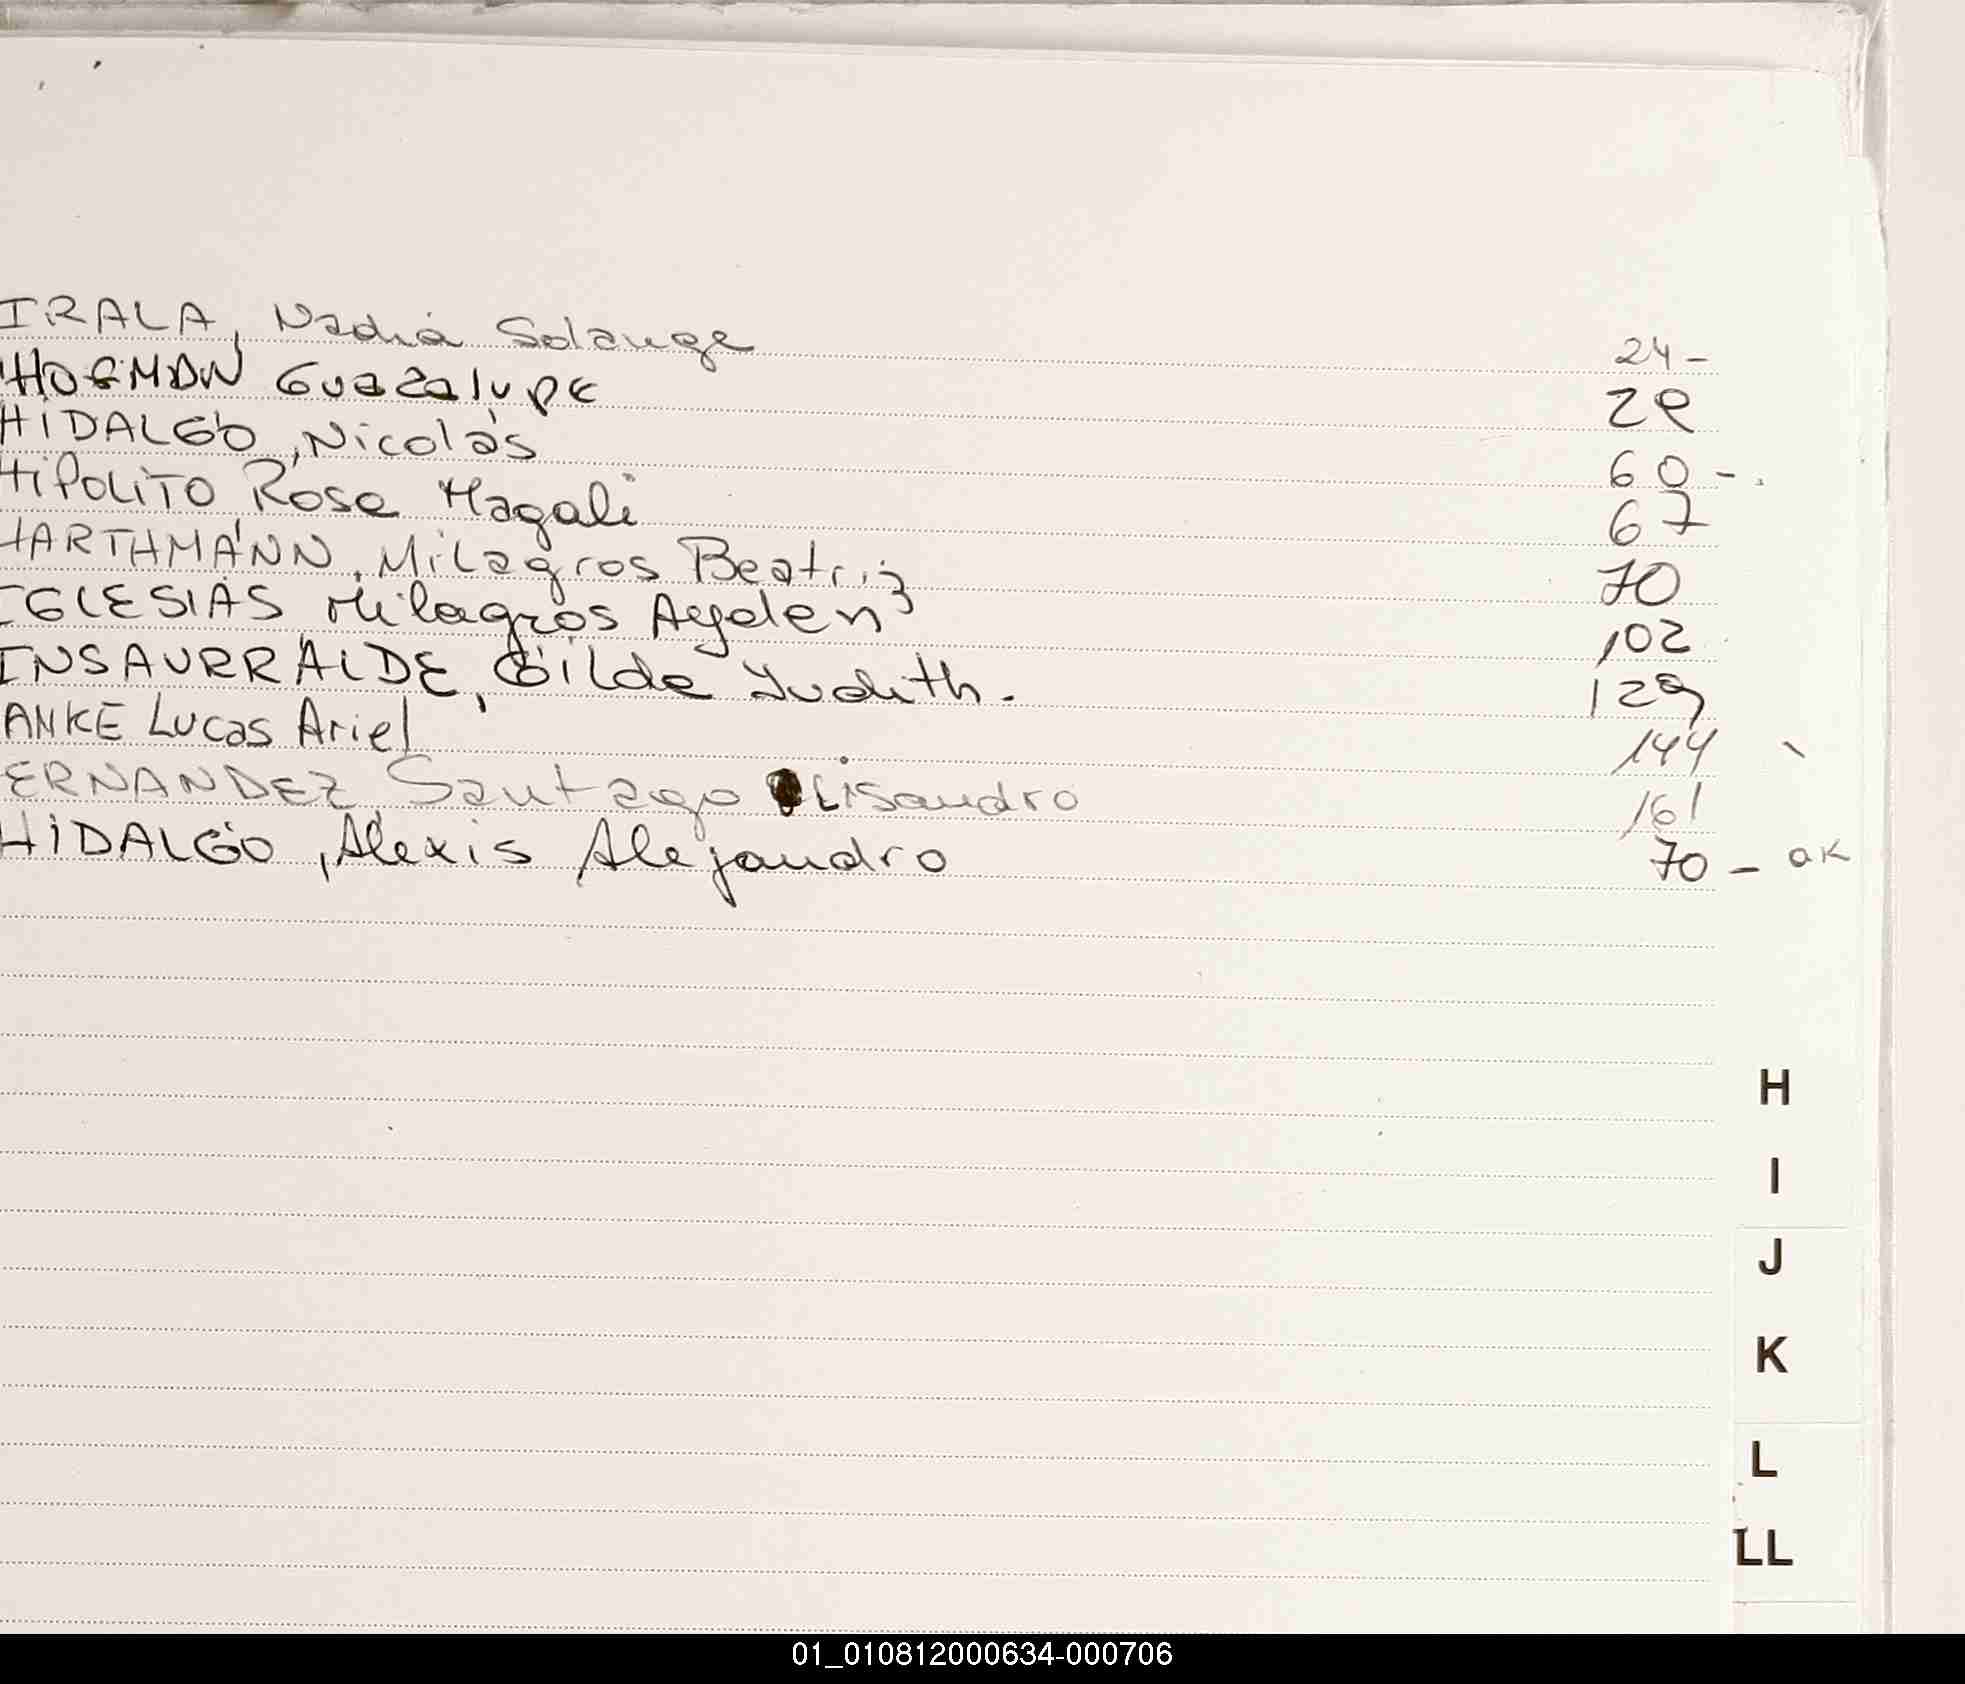 IRALA, Nadia Solange 24-
HOFMAN Guadalupe 29
HIDALGO, Nicolás 60-.
HIPOLITO Rosa Magali 67
HARTHMANN, Milagros Beatriz 70
IGLESIAS Milagros Ayelen 102
INSAURRALDE, Gilda Judith. 129
ANKE Lucas Ariel 144
ERNANDEZ, Santiago Lisandro 161
HIDALGO, Alexis Alejandro 70 - OK
H
I
J
K
L
LL
01_010812000634-000706